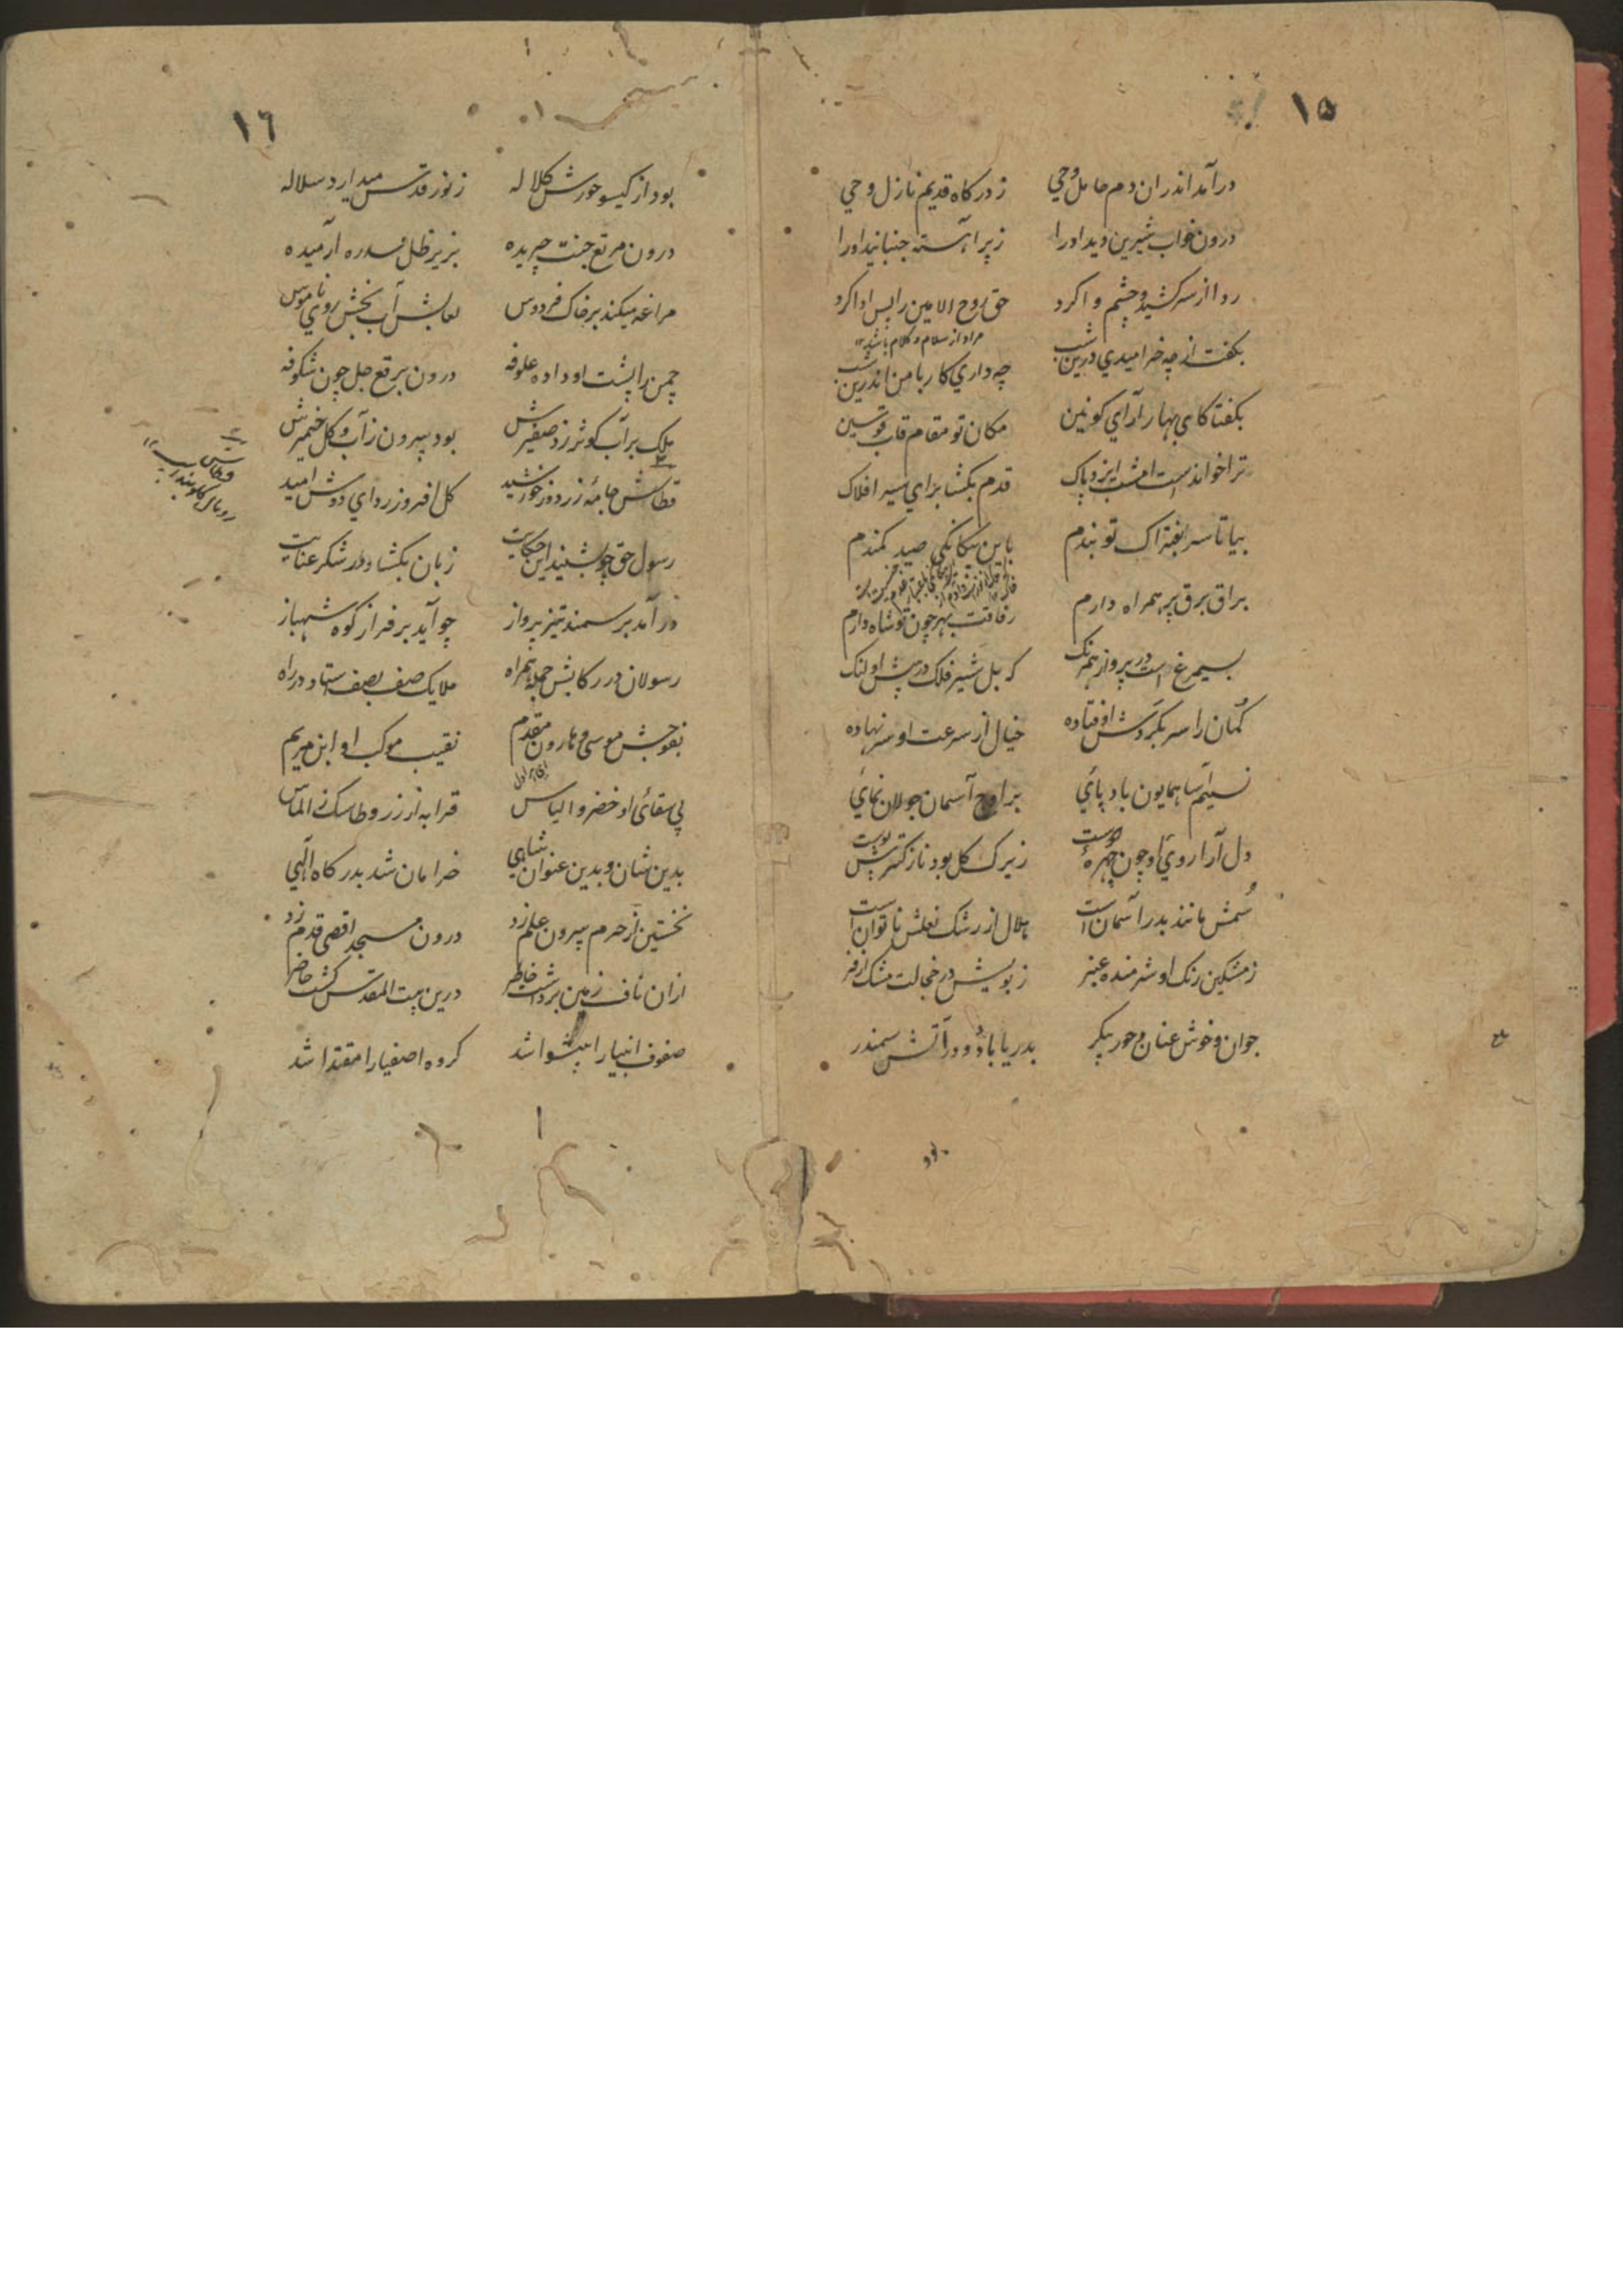 ١٥
درآمد اندران دم حامل وحي ز درکاه قديم نازل وحي
درون خواب شيرين ديد اورا ز پر آهسته جنبانيد اورا
ردا از سر کشيد و چشم وا کرد حق روح الامين را پس ادا کرد
مراد از سلام و کلام باشد ١٢
بکفت از چه خراميدي درين شب چه داري کار با من اندرين شب
بکفتا کاي بهار آراي کونين مکان تو مقام قاب قوسين
ترا خواندست امشب ايزد پاک قدم بکشا براي سير افلاک
بيا تا سر بفتراک تو بندم باين بيکانکي صيد کمندم
براق برق پر همراه دارم رفاقت بهر چون تو شاه دارم
بسيمرغ است در پرواز همرنک که بل شير فلک در پيش او لنک
کمان را سر بکردش اوفتاده خيال از سرعت او سر نهاده
نسيم آسا همايون باد پائي بر اوج آسمان جولان نمائي
دل آرا روئ او چون چهرهٔ دوست ز برک کل بود نازکترش پوست
سُمش مانند بدر آسمان است هلال از رشک نعلش ناتوان است
ز مشکين رنک او شرمنده عنبر ز بويش در خجالت مشک اذفر
جوان و خوش عنان و حور پيکر بدريا باد و در آتش سمندر
بود
١٦
بود از کيسو حورش کلاله ز نور قدس ميدارد سلاله
درون مرتع جنت چريده بزير ظل سدره آرميده
مراغه ميکند بر خاک فردوس لعابش آب بخش روئي ناموس
چمن را پشت او داده علوفه درون برقع جل چون شکوفه
ملک بر آب کوثر زد صفيرش بود بيرون ز آب و کل خميرش
قطاش جامهٔ زر دوز خورشيد کل افروز رداي دوش اميد
رسول حق چو بشنيد اين حکايت زبان بکشاد در شکر عنايت
در آمد بر سمند تيز پرواز چو آيد بر فراز کوه شهباز
رسولان در رکابش جمله همراه ملايک صف بصف استاد در راه
بفوجش موسي و هارون مقدم نقيب موکب او ابن مريم
پي سقائي او خضر و الياس قرابه از زر و طاسک ز الماس
بدين شان و بدين عنوان شاهي خرامان شد بدرکاه آلهي
نخستين از حرم بيرون علم زد درون مسجد اقصي قدم زد
ازان ناف زمين برداشت خاطر درين بيت المقدس کشت حاضر
صفوف انبيا را پيشوا شد کروه اصفيا را مقتدا شد